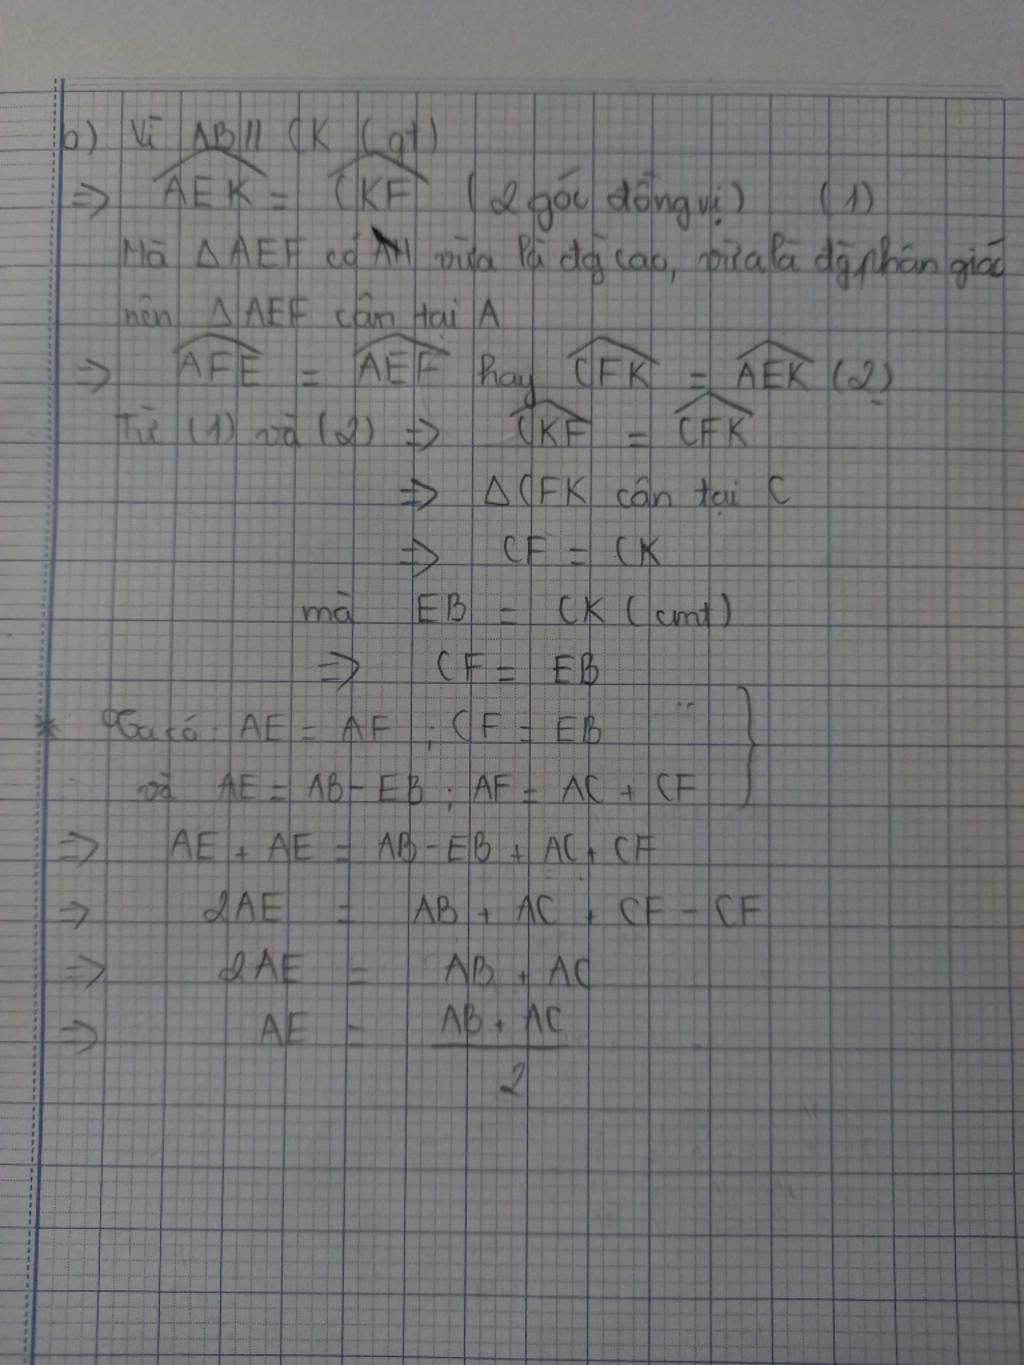 b) Vì AB // CK (gt)
=> AEK = CKF (2 góc đồng vị) (1)
Mà Δ AEF có AH vừa là đg cao, vừa là đg phân giác
nên Δ AEF cân tại A
=> AFE = AEF hay CFK = AEK (2)
Từ (1) và (2) => CKF = CFK
=> Δ CFK cân tại C
=> CF = CK
mà EB = CK (cmt)
=> CF = EB
* Ta có: AE = AF ; CF = EB
và AE = AB - EB ; AF = AC + CF
=> AE + AE = AB - EB + AC + CF
=> 2AE = AB + AC + CF - CF
=> 2AE = AB + AC
=> AE = AB + AC
2